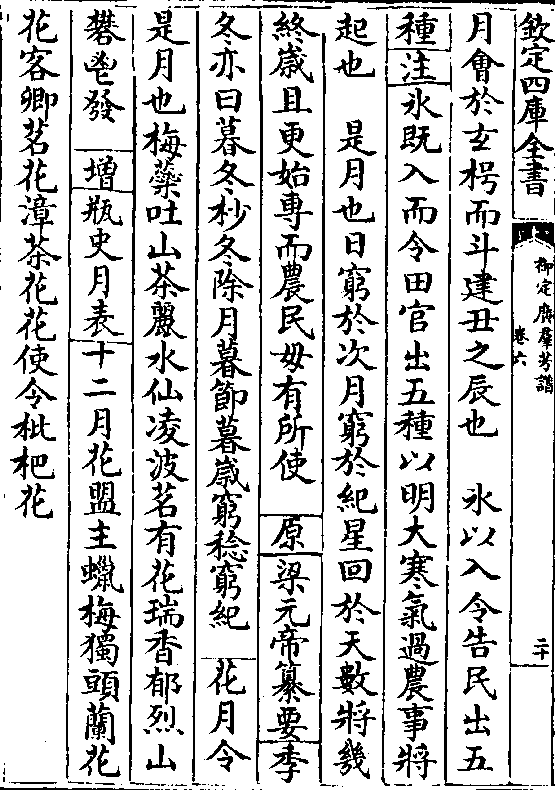 欽定四庫全書
御定廣羣芳譜
卷六
二十
月會於玄枵而斗建丑之辰也　氷以入令告民出五
種注氷既入而令田官出五種以明大寒氣過農事將
起也　是月也日窮於次月窮於紀星回於天數將幾
終歲且更始專而農民毋有所使　原梁元帝纂要季
冬亦曰暮冬杪冬除月暮節暮嵗窮稔窮紀　花月令
是月也梅蘂吐山茶麗水仙凌波茗有花瑞香郁烈山
礬鬯發　增瓶史月表十二月花盟主蠟梅獨頭蘭花
花客卿茗花漳茶花花使令枇杷花